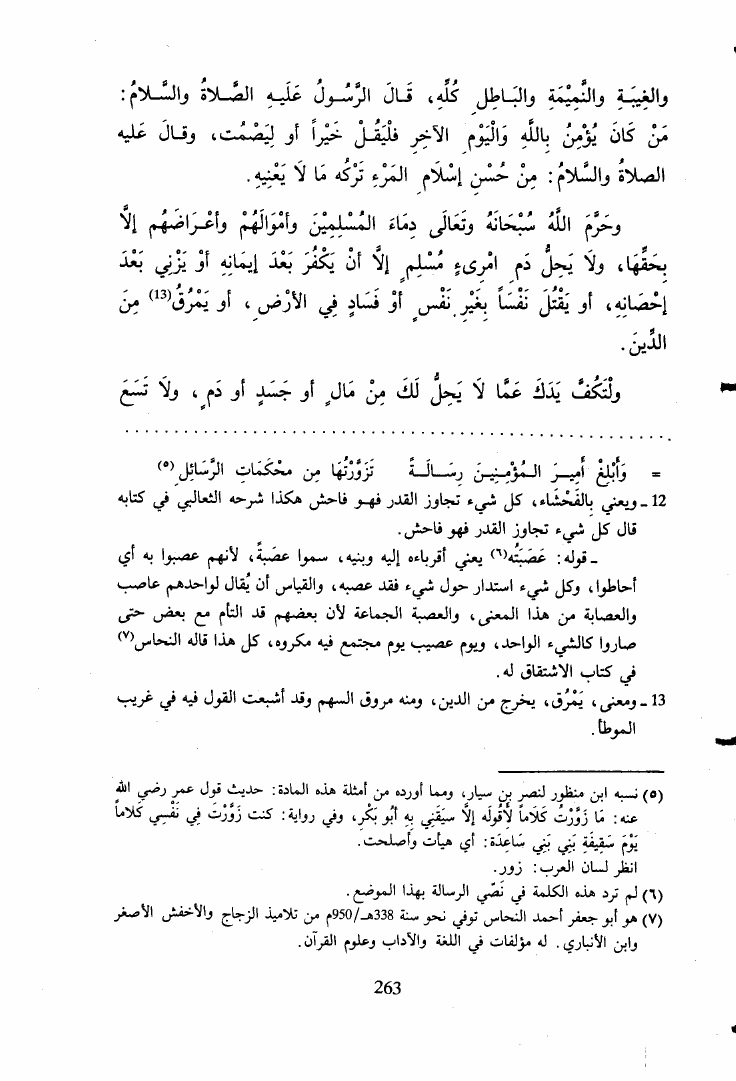 والغِيبَةِ والنَّمِيْمَةِ والبَاطِلِ كُلِّهِ، قَالَ الرَّسُولُ عَلَيهِ الصَّلاةُ والسَّلامُ:
مَنْ كَانَ يُؤْمِنُ بِاللَّهِ وَالْيَوْمِ الآخِرِ فَلْيَقُلْ خَيْراً أو لِيَصْمُت، وقالَ عَليه
الصلاةُ والسَّلامُ: مِنْ حُسْنِ إسْلَامِ المَرْءِ تَرْكُه مَا لَا يَعْنِيهِ.
وحَرَّمَ اللَّهُ سُبْحَانَهُ وتَعَالَى دِمَاءَ المُسْلِمِيْنَ وأمْوَالَهُمْ وأعْرَاضَهُم إلَّا
بِحَقِّهَا، ولَا يَحِلُّ دَم امْرِىءٍ مُسْلِمٍ إلَّا أنْ يَكْفُرَ بَعْدَ إيمَانِهِ أوْ يَزْنِي بَعْدَ
إحْصَانِهِ، أو يَقْتُلَ نَفْسَاً بِغَيْرِ نَفْسٍ أوْ فَسَادٍ فِي الأرْضِ، أو يَمْرُقُ(13) مِنَ
الدِّينِ.
ولْتَكُفَّ يَدَكَ عَمَّا لَا يَحِلُّ لَكَ مِنْ مَالٍ أو جَسَدٍ أو دَمٍ، ولَا تَسَعَ
= وَأَبْلِغْ أَمِيرَ الـمُؤْمِنِينَ رِسَـالَـةً تَزَوَّرْتُهَا مِن محْكَمَاتِ الرَّسَائِلِ(٥)
12 ـ ويعني بالفَحْشاء، كل شيء تجاوز القدر فهو فاحش هكذا شرحه الثعالبي في كتابه
قال كل شيء تجاوز القدر فهو فاحش.
ـ قوله: عَصَبَتُه(٦) يعني أقرباءه إليه وبنيه، سموا عصَبةً، لأنهم عصبوا به أي
أحاطوا، وكل شيء استدار حول شيء فقد عصبه، والقياس أن يُقال لواحدهم عاصب
والعصابة من هذا المعنى، والعصبة الجماعة لأن بعضهم قد التأم مع بعض حتى
صاروا كالشيء الواحد، ويوم عصيب يوم مجتمع فيه مكروه، كل هذا قاله النحاس(٧)
في كتاب الاشتقاق له.
13 ـ ومعنى، يَمْرُق، يخرج من الدين، ومنه مروق السهم وقد أشبعت القول فيه في غريب
الموطأ.
(٥) نسبه ابن منظور لنصر بن سيار، ومما أورده من أمثلة هذه المادة: حديث قول عمر رضي الله
عنه: مَا زَوَّرْتُ كَلَاماً لأَقُولَه إلَّا سَبَقَنِي بِهِ أبُو بَكْرٍ، وفي رواية: كنت زَوَّرْتَ فِي نَفْسِي كَلَاماً
يَوْمَ سَقِيفَةِ بَنِي بَنِي سَاعِدَة: أي هيأت وأصلحت.
انظر لسان العرب: زور.
(٦) لم ترد هذه الكلمة في نَصّي الرسالة بهذا الموضع.
(٧) هو أبو جعفر أحمد النحاس توفي نحو سنة 338هـ/950م من تلاميذ الزجاج والأخفش الأصغر
وابن الأنباري. له مؤلفات في اللغة والآداب وعلوم القرآن.
263